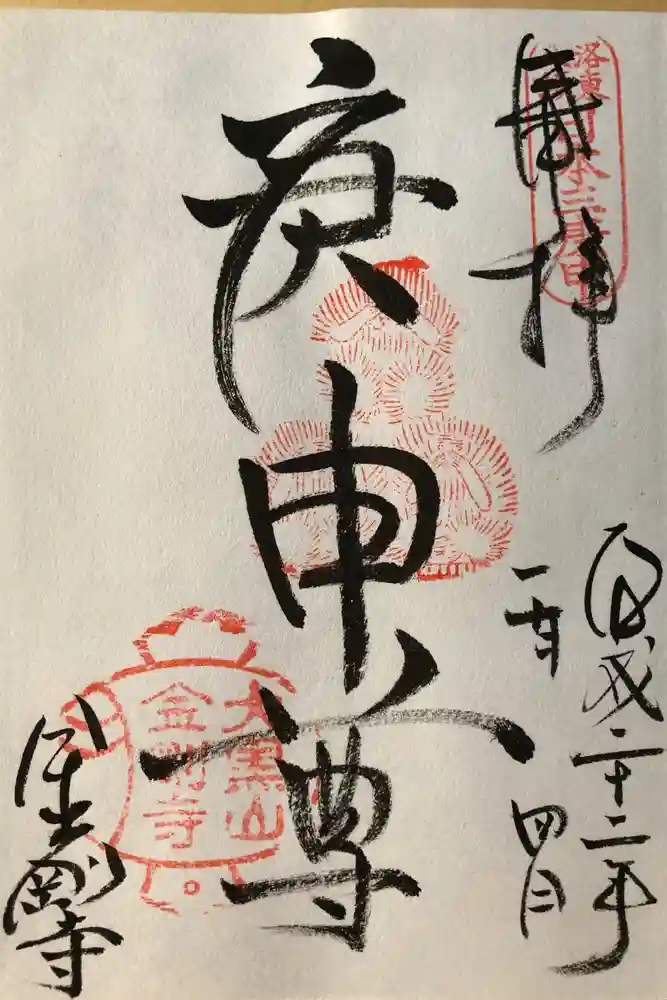 奉拝
洛東
日本三庚申
平成二十二年
四月
一日
庚申尊
大黒山
金剛寺
金剛寺